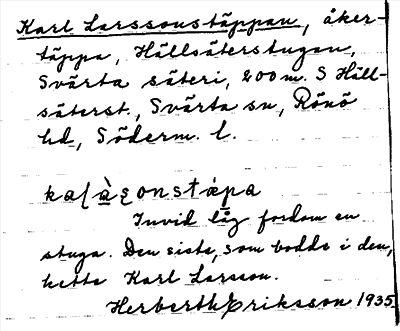 Karl Larssonstäppan, åker-
täppa, Hällsäterstugan,
Svärta säteri, 200 m. S Häll-
säterst., Svärta sn, Rönö
hd, Söderm. l.
Invid låg fordom en
stuga. Den siste, som bodde i den,
hette Karl Larsson.
Herberth Eriksson 1935.